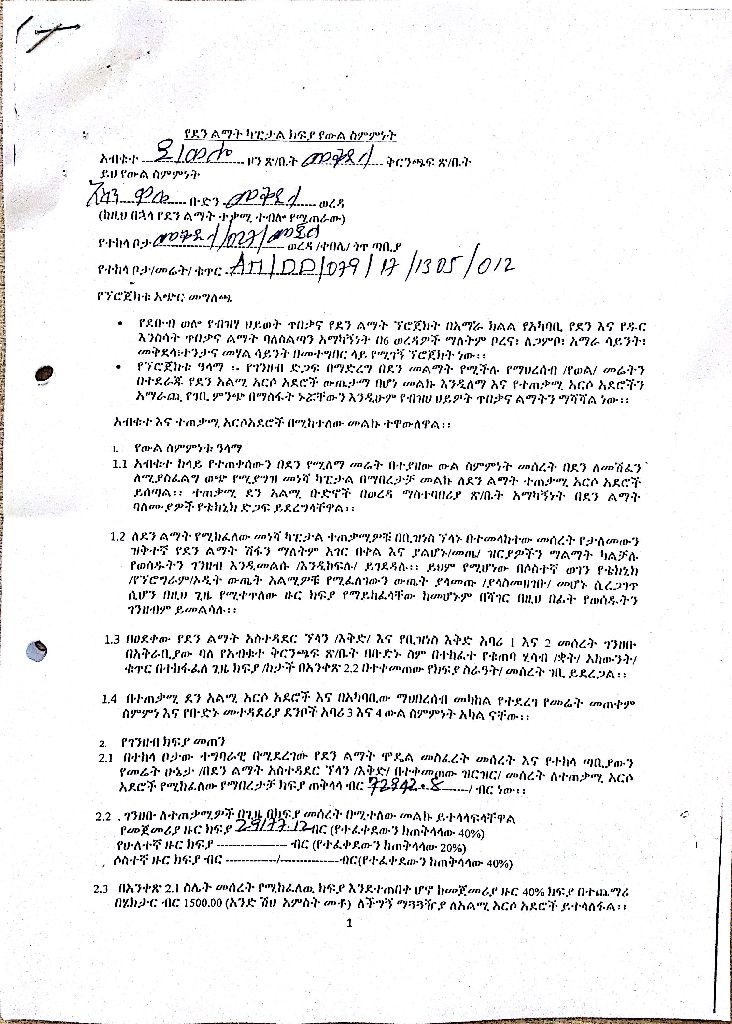 የደን ልማት ካፒታል ክፍያ የውል ስምምነት
አብቁተ ዞን ጽ/ቤት መቅደላ ቅርንጫፍ ጽ/ቤት
ይህ የውል ስምምነት
ቡድን መቅደላ ወረዳ
(ከዚህ በኋላ የደን ልማት ተቃሚ ተብሎ የሚጠራው)
የተከላ ቦታ መቅደላ/027/ ወረዳ /ቀበሌ/ ንዋ ጣቢያ
የተከላ ቦታ/መሬት/ ቁጥር AM/DD/079/17/1305/012
የፕሮጀክቱ አጭር መግለጫ
• የደቡብ ወሎ የብዝሃ ህይወት ጥበቃና የደን ልማት ፕሮጀክት በአማራ ክልል የአካባቢ የደን እና የዱር
እንስሳት ጥበቃና ልማት ባለስልጣን አማካኝነት በ6 ወረዳዎች ማለትም ቦረና፣ ለጋምቦ፣ አማራ ሳይንት፣
መቅደላ፣ተንታና መሃል ሳይንት በመተግበር ላይ የሚገኝ ፕሮጀክት ነው፡፡
• የፕሮጀክቱ ዓላማ ፡- የገንዘብ ድጋፍ በማድረግ በደን መልማት የሚችሉ የማህበረሰብ /የወል/ መሬትን
በተደራጁ የደን አልሚ አርሶ አደሮች ውጤታማ በሆነ መልኩ እንዲለማ እና የተጠቃሚ አርሶ አደሮችን
አማራጪ የገቢ ምንጭ በማስፋት ኑሯቸውን እንዲሁም የብዝሀ ህይዎት ጥበቃና ልማትን ማሻሻል ነው፡፡
አብቁተ እና ተጠቃሚ አርሶአደሮች በሚከተለው መልኩ ተዋውለዋል፡፡
1. የውል ስምምነቱ ዓላማ
1.1 አብቁተ ከላይ የተጠቀሰውን በደን የሚለማ መሬት በተያዘው ውል ስምምነት መሰረት በደን ለመሸፈን
ለሚያስፈልግ ወጭ የሚያግዝ መነሻ ካፒታል በማበረታቻ መልኩ ለደን ልማት ተጠቃሚ አርሶ አደሮች
ይሰጣል፡፡ ተጠቃሚ ደን አልሚ ቡድኖች በወረዳ ማስተባበሪያ ጽ/ቤት አማካኝነት በደን ልማት
ባለሙያዎች የቴክኒክ ድጋፍ ይደረግላቸዋል፡፡
1.2 ለደን ልማት የሚከፈለው መነሻ ካፒታል ተጠቃሚዎቹ በቢዝነስ ፕላኑ በተመላከተው መሰረት የታለመውን
ዝቅተኛ የደን ልማት ሽፋን ማለትም አገር በቀል እና ያልሆኑ/መጤ/ ዝርያዎችን ማልማት ካልቻሉ
የወሰዱትን ገንዘብ እንዲመልሱ /እንዲከፍሉ/ ይገደዳሉ፡፡ ይህም የሚሆነው በሶስተኛ ወገን የቴክኒክ
/የፕሮግራም/ኦዲት ውጤት አልሚዎቹ የሚፈለገውን ውጤት ያላመጡ /ያላስመዘገቡ/ መሆኑ ሲረጋገጥ
ሲሆን በዚህ ጊዜ የሚቀጥለው ዙር ክፍያ የማይከፈላቸው ከመሆኑም በሻገር በዚህ በፊት የወሰዱትን
ገንዘብም ይመልሳሉ፡፡
1.3 በፀደቀው የደን ልማት አስተዳደር ፕላን /እቅድ/ እና የቢዝነስ እቅድ አባሪ 1 እና 2 መሰረት ገንዘቡ
በአቅራቢያው ባለ የአብቁተ ቅርንጫፍ ጽ/ቤት በቡድኑ ስም በተከፈተ የቁጠባ ሂሳብ /ቋት/ አካውንት/
ቁጥር በተከፋፈለ ጊዜ ክፍያ /ከታች በአንቀጽ 2.2 በተቀመጠው የክፍያ ስራዓት/ መሰረት ገቢ ይደረጋል፡፡
1.4 በተጠቃሚ ደን አልሚ አርሶ አደሮች እና በአካባቢው ማህበረሰብ መካከል የተደረገ የመሬት መጠቀም
ስምምነ እና የቡድኑ መተዳደሪያ ደንቦች አባሪ 3 እና 4 ውል ስምምነት አካል ናቸው፡፡
2. የገንዘብ ክፍያ መጠን
2.1 በተከላ ቦታው ተግባራዊ በሚደረገው የደን ልማት ሞዴል መስፈረት መሰረት እና የተከላ ጣቢያውን
የመሬት ሁኔታ /በደን ልማት አስተዳደር ፕላን /እቅድ/ በተቀመጠው ዝርዝር/ መሰረት ለተጠቃሚ አርሶ
አደሮች የሚከፈለው የማበረታቻ ክፍያ ጠቅላላ ብር 72942.8 / ብር ነው፡፡
2.2 ገንዘቡ ለተጠቃሚዎች በጊዜ በክፍያ መሰረት በሚተለው መልኩ ይተላላፍላቸዋል
የመጀመሪያ ዙር ክፍያ 29177.12 ብር (የተፈቀደውን ከጠቅላላው 40%)
የሁለተኛ ዙር ክፍያ ------------------ ብር (የተፈቀደውን ከጠቅላላው 20%)
ሶስተኛ ዙር ክፍያ ብር -------------/---------------ብር(የተፈቀደውን ከጠቅላላው 40%)
2.3 በአንቀጽ 2.1 ስሌት መሰረት የሚከፈለዉ ክፍያ እንደተጠበቀ ሆኖ ከመጀመሪያ ዙር 40% ክፍያ በተጨማሪ
በሄክታር ብር 1500.00 (አንድ ሽህ አምስት መቶ) ለችግኝ ማጓጓዥያ ለአልሚ አርሶ አደሮች ይተላለፋል፡፡
1